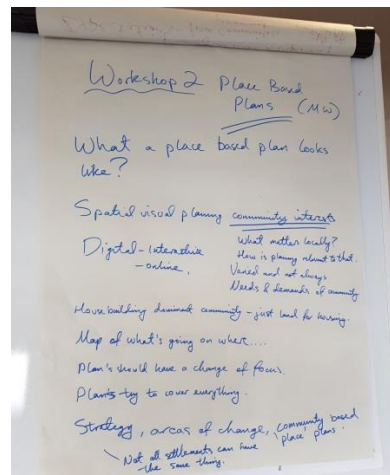 Workshop 2 Place Based
Plans (MW)
What a place based plan looks
like?
Spatial visual planning community interests
What matter locally?
Digital - Interactive
How is planning relevant to that.
- online,
Varied and not always
Needs & demands of community
Housebuilding dominant community - just land for housing.
Map of what's going on where....
Plan's should have a change of focus.
Plans try to cover everything.
Strategy, areas of change, community based
place plans.
Not all settlements can have
the same thing.